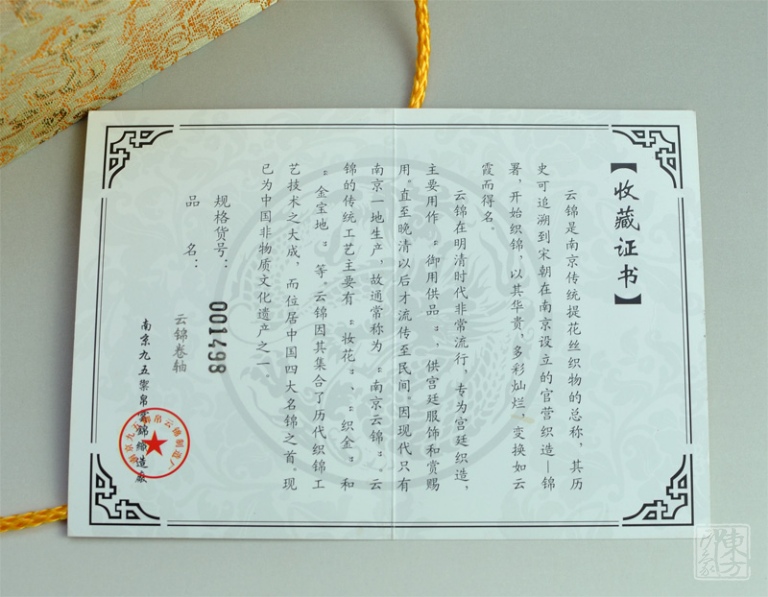 【收藏证书】
云锦是南京传统提花丝织物的总称，其历
史可追溯到宋朝在南京设立的官营织造—锦
署，开始织锦，以其华贵，多彩灿烂，变换如云
霞而得名。
云锦在明清时代非常流行，专为宫廷织造，
主要用作“御用供品”，供宫廷服饰和赏赐
用。直至晚清以后才流传至民间，因现代只有
南京一地生产，故通常称为“南京云锦”。云
锦的传统工艺主要有“妆花”、“织金”和
“金宝地”等云锦因其集合了历代织锦工
艺技术之大成，而位居中国四大名锦之首。现
已为中国非物质文化遗产之一
规格货号：001498
品 名：云锦卷轴
南京九五禦帛雲錦織造廠